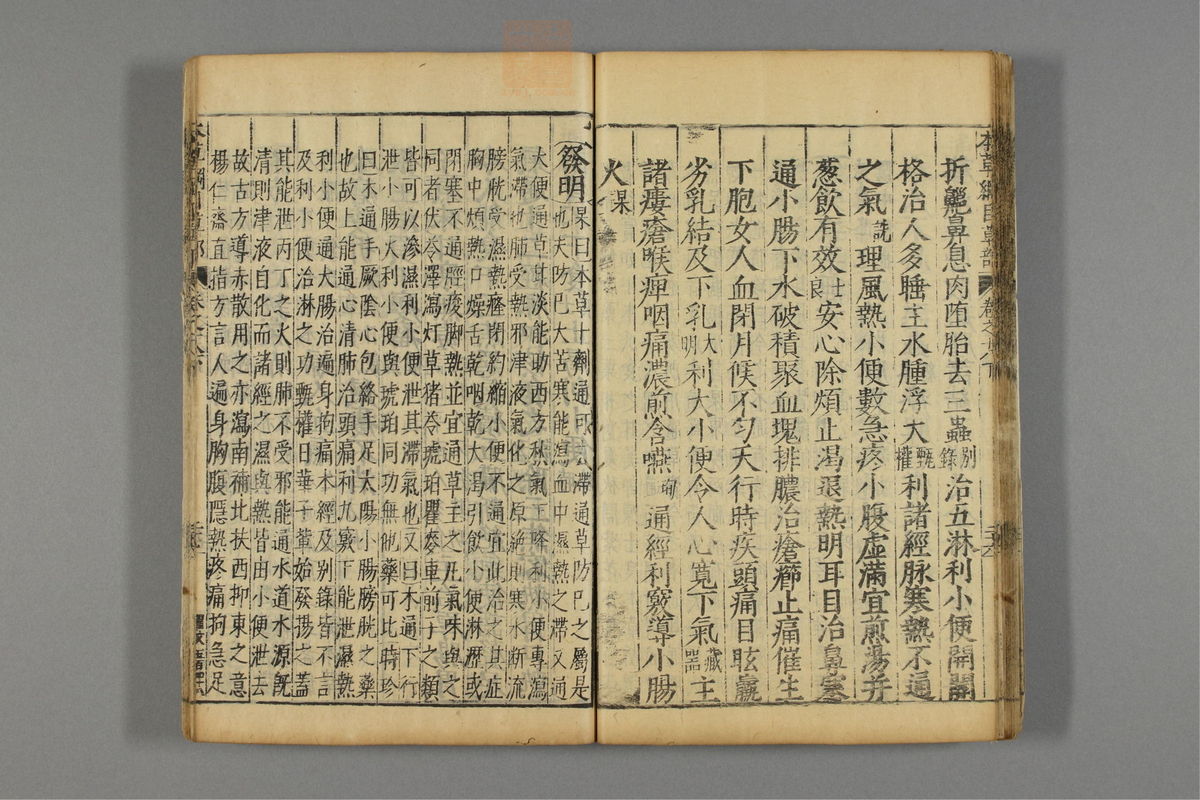 本草綱目草部 卷之十八下
折齆鼻息肉墮胎去三蟲別錄治五淋利小便開關
格治人多睡主水腫浮大甄權利諸經脉寒熱不通
之氣詵理風熱小便數急疼小腹虛滿宜煎湯并
葱飲有效士良安心除煩止渴退熱明耳目治鼻塞
通小腸下水破積聚血塊排膿治瘡癤止痛催生
下胞女人血閉月候不勻天行時疾頭痛目眩羸
劣乳結及下乳大明利大小便令人心寬下氣藏器主
諸瘻瘡喉痺咽痛濃煎含嚥珣通經利竅導小腸
火杲
發明杲曰本草十劑通可去滯通草防巳之屬是
也夫防巳大苦寒能瀉血中濕熱之滯又通
大便通草甘淡能助西方秋氣下降利小便專瀉
氣滯也肺受熱邪津液氣化之原絶則寒水斷流
膀胱受濕熱癃閉約縮小便不通宜此治之其症
胸中煩熱口燥舌乾咽乾大渴引飲小便淋瀝或
閉塞不通脛痠脚熱並宜通草主之凡氣味與之
同者伏苓澤瀉灯草猪苓琥珀瞿麥車前子之類
皆可以滲濕利小便泄其滯氣也又曰木通下行
泄小腸火利小便與琥珀同功無他藥可比時珍
曰木通手厥陰心包絡手足太陽小腸膀胱之藥
也故上能通心清肺治頭痛利九竅下能泄濕熱
利小便通大腸治遍身拘痛本經及别錄皆不言
及利小便治淋之功甄權日華子輩始發揚之蓋
其能泄丙丁之火則肺不受邪能通水道水源旣
清則津液自化而諸經之濕與熱皆由小便泄去
故古方導赤散用之亦瀉南補北扶西抑東之意
楊仁齋直指方言人遍身胸腹隱熱疼痛拘急足